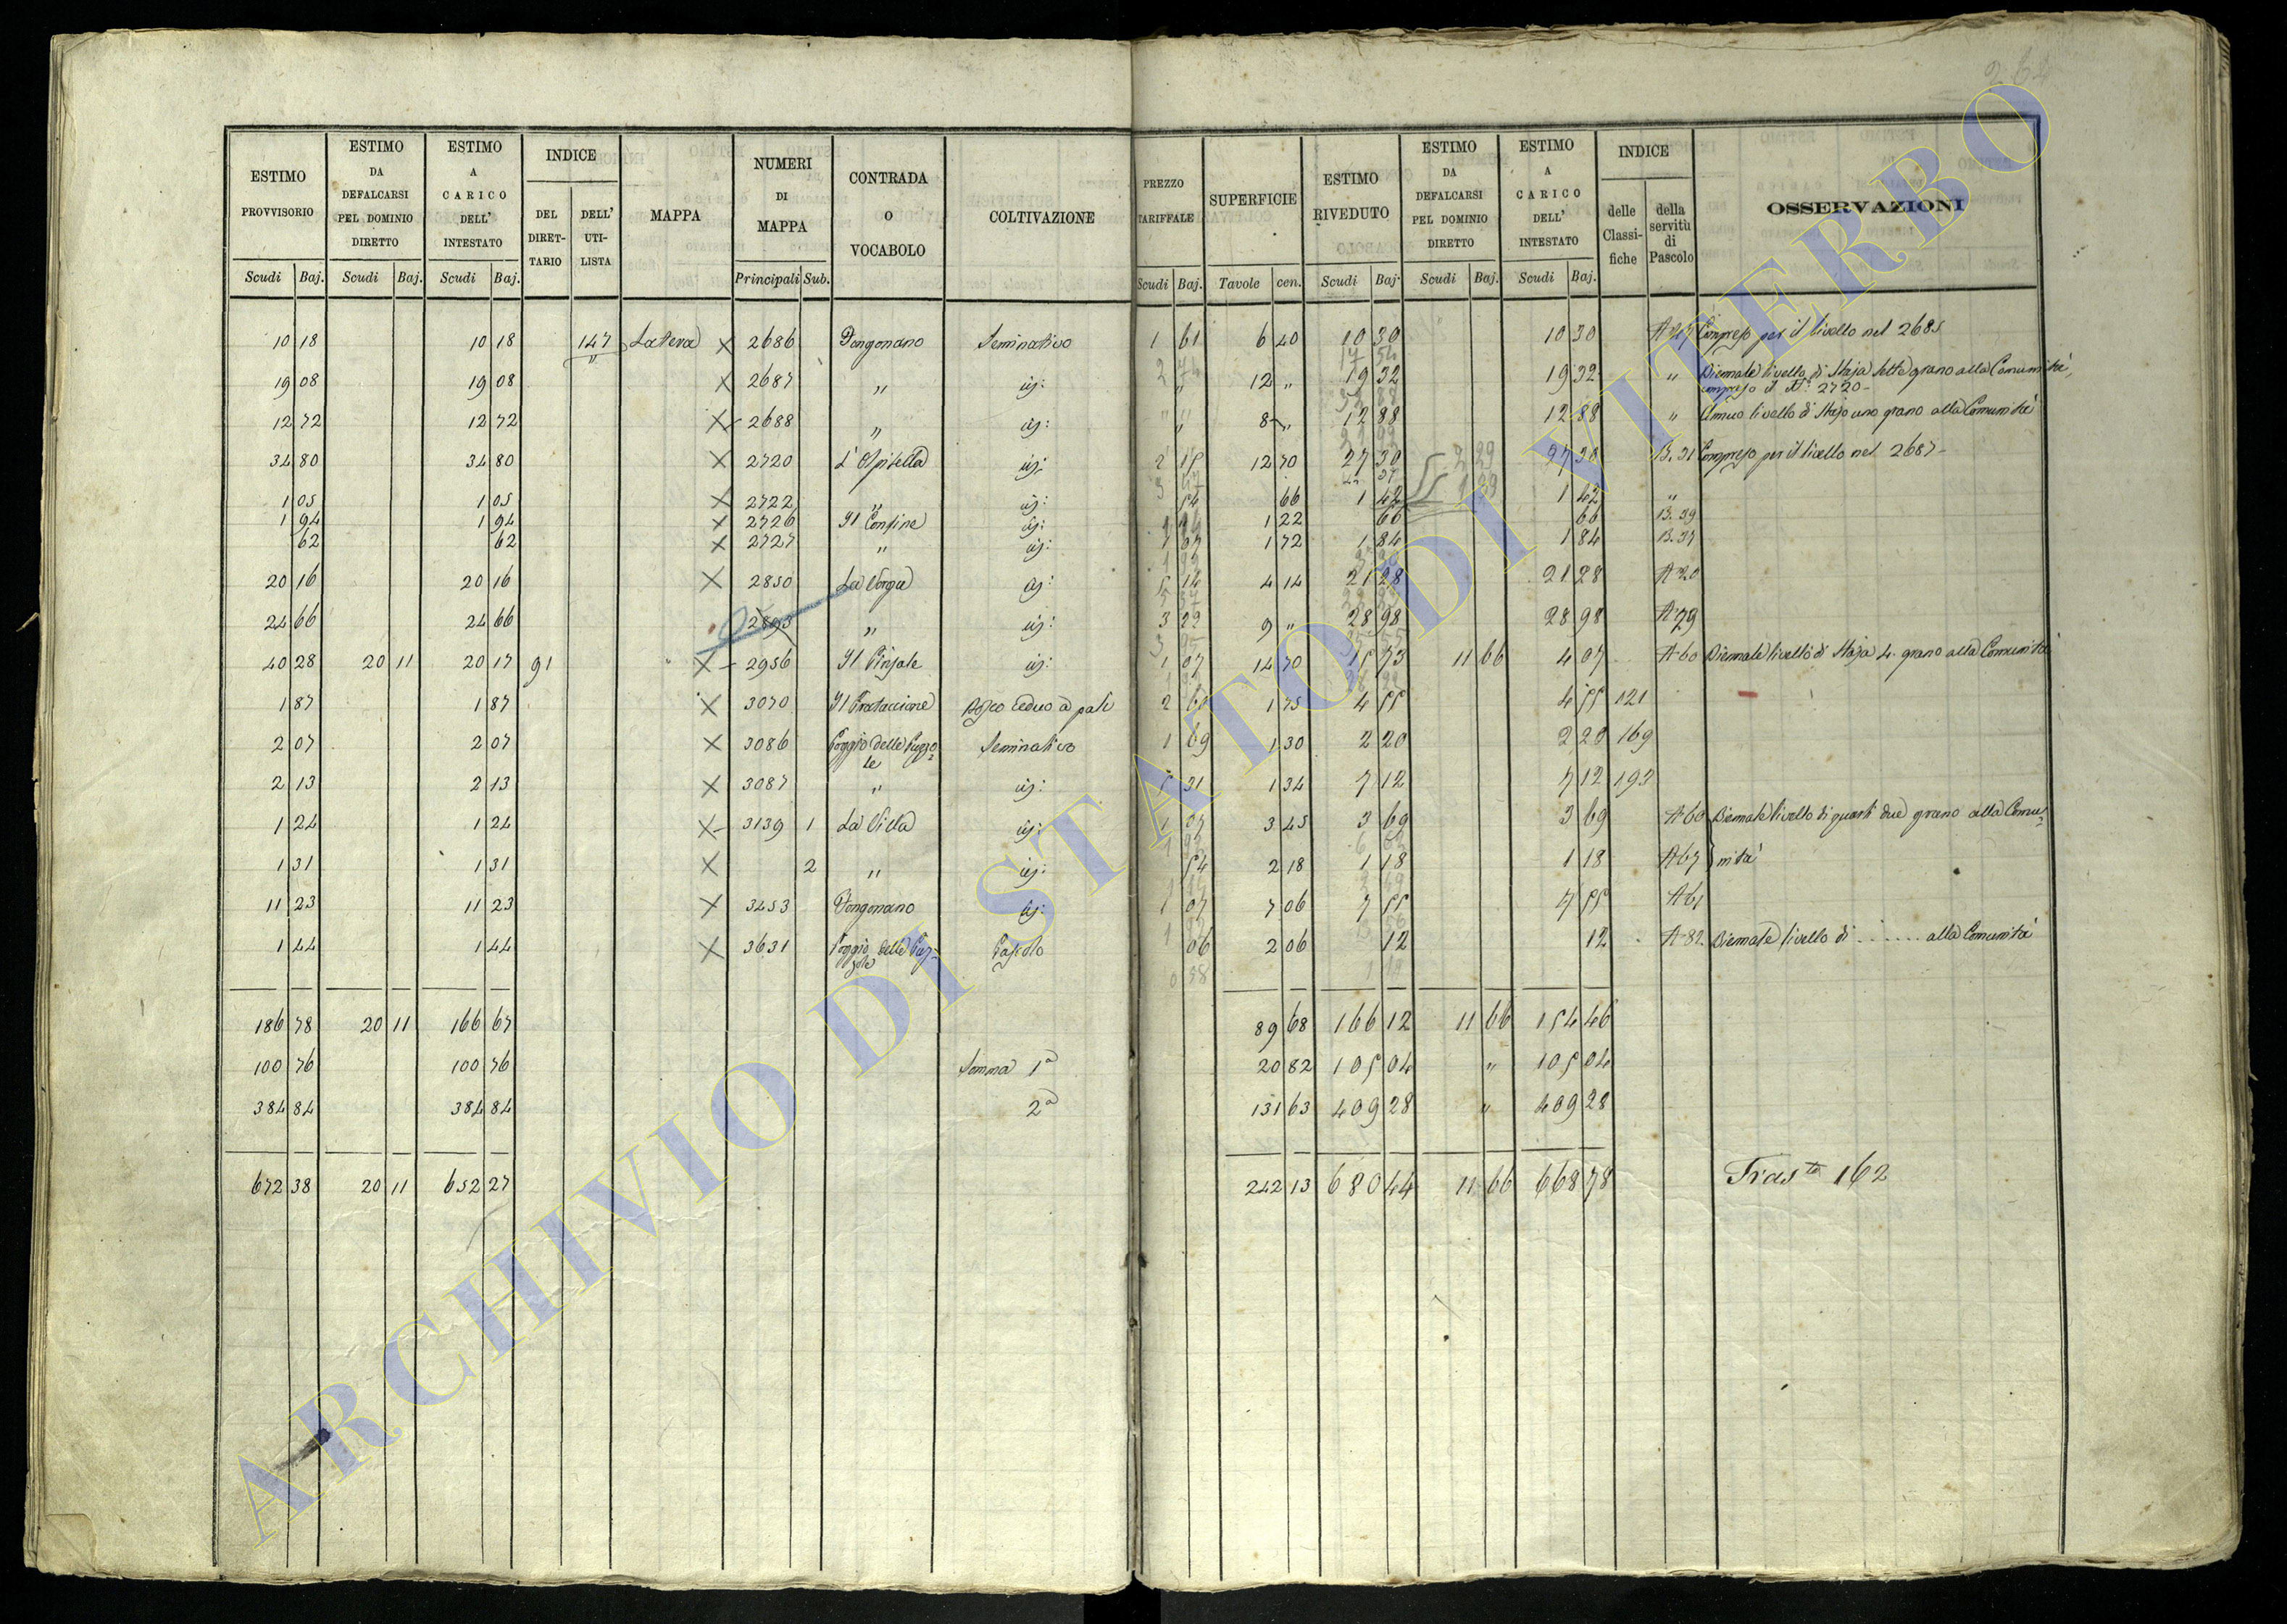 264
ESTIMO PROVVISORIO | ESTIMO DA DEFALCARSI PEL DOMINIO DIRETTO | ESTIMO A CARICO DELL' INTESTATO | INDICE | MAPPA | NUMERI DI MAPPA | CONTRADA O VOCABOLO | COLTIVAZIONE | PREZZO TARIFFALE | SUPERFICIE | ESTIMO RIVEDUTO | ESTIMO DA DEFALCARSI PEL DOMINIO DIRETTO | ESTIMO A CARICO DELL' INTESTATO | INDICE | OSSERVAZIONI
DEL DIRETTARIO | DELL' UTILISTA | delle Classifiche | della servitù di Pascolo
Scudi Baj. | Scudi Baj. | Scudi Baj. | Principali Sub. | Scudi Baj. | Tavole cen. | Scudi Baj. | Scudi Baj. | Scudi Baj.
10 18 | 10 18 | 147 | Latera | X 2686 | Vongonano | Seminativo | 1 61 | 6 40 | 10 30 | 10 30 | Compreso per il livello nel 2685
19 08 | 19 08 | X 2687 | " | id: | " | 12 " | 19 32 | 19 32 | " | Biennale livello di Staja sette grano alla Comunità, compreso il N° 2720
12 72 | 12 72 | X 2688 | " | id: | " | 8 " | 12 88 | 12 88 | " | Annuo livello di Stajo uno grano alla Comunità
34 80 | 34 80 | X 2720 | L' Ospitella | id: | 2 15 | 12 70 | 27 30 | 27 30 | B. 31 | Compreso per il livello nel 2687
1 05 | 1 05 | X 2722 | " | id: | 66 | 1 42 | 1 42 | "
1 94 | 1 94 | X 2726 | Il Confine | id: | 1 22 | 66 | 66 | B. 39
62 | 62 | X 2727 | " | id: | 1 07 | 1 72 | 1 84 | 1 84 | B. 37
20 16 | 20 16 | X 2850 | La Vorga | id: | 5 14 | 4 14 | 21 28 | 21 28 | A 20
24 66 | 24 66 | 2893 | " | id: | 3 22 | 9 " | 28 98 | 28 98 | A 79
40 28 | 20 11 | 20 17 | 91 | X 2956 | Il Pinzale | id: | 1 07 | 14 70 | 15 73 | 11 66 | 4 07 | A 60 | Biennale livello di Staja 4. grano alla Comunità
1 87 | 1 87 | X 3070 | Il Prataccione | Bosco ceduo a pali | 2 60 | 1 75 | 4 55 | 4 55 | 121
2 07 | 2 07 | X 3086 | Poggio delle Puzzole | Seminativo | 1 69 | 1 30 | 2 20 | 2 20 | 169
2 13 | 2 13 | X 3087 | " | id: | 5 31 | 1 34 | 7 12 | 7 12 | 193
1 24 | 1 24 | X 3139 1 | La Villa | id: | 1 07 | 3 45 | 3 69 | 3 69 | A 60 | Biennale livello di quarti due grano alla Comu=
1 31 | 1 31 | X 2 | " | id: | 54 | 2 18 | 1 18 | 1 18 | A 67 | nità
11 23 | 11 23 | X 3453 | Vongonano | id: | 1 07 | 7 06 | 7 55 | 7 55 | A 61
1 44 | 1 44 | X 3631 | Poggio delle Puzzole | Pascolo | 06 | 2 06 | 12 | 12 | A 82 | Biennale livello di ....... alla Comunità
186 78 | 20 11 | 166 67 | 89 68 | 166 12 | 11 66 | 154 46
100 76 | 100 76 | Somma 1ª | 20 82 | 105 04 | " | 105 04
384 84 | 384 84 | 2ª | 131 63 | 409 28 | " | 409 28
672 38 | 20 11 | 652 27 | 242 13 | 680 44 | 11 66 | 668 78 | Tras.to 162
ARCHIVIO DI STATO DI VITERBO